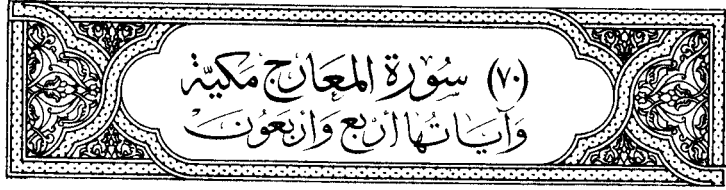 (٧٠) سُورَة المَعَارج مَكيَّة
وَآيَاتُهَا أرْبَع وَأرْبَعُونَ